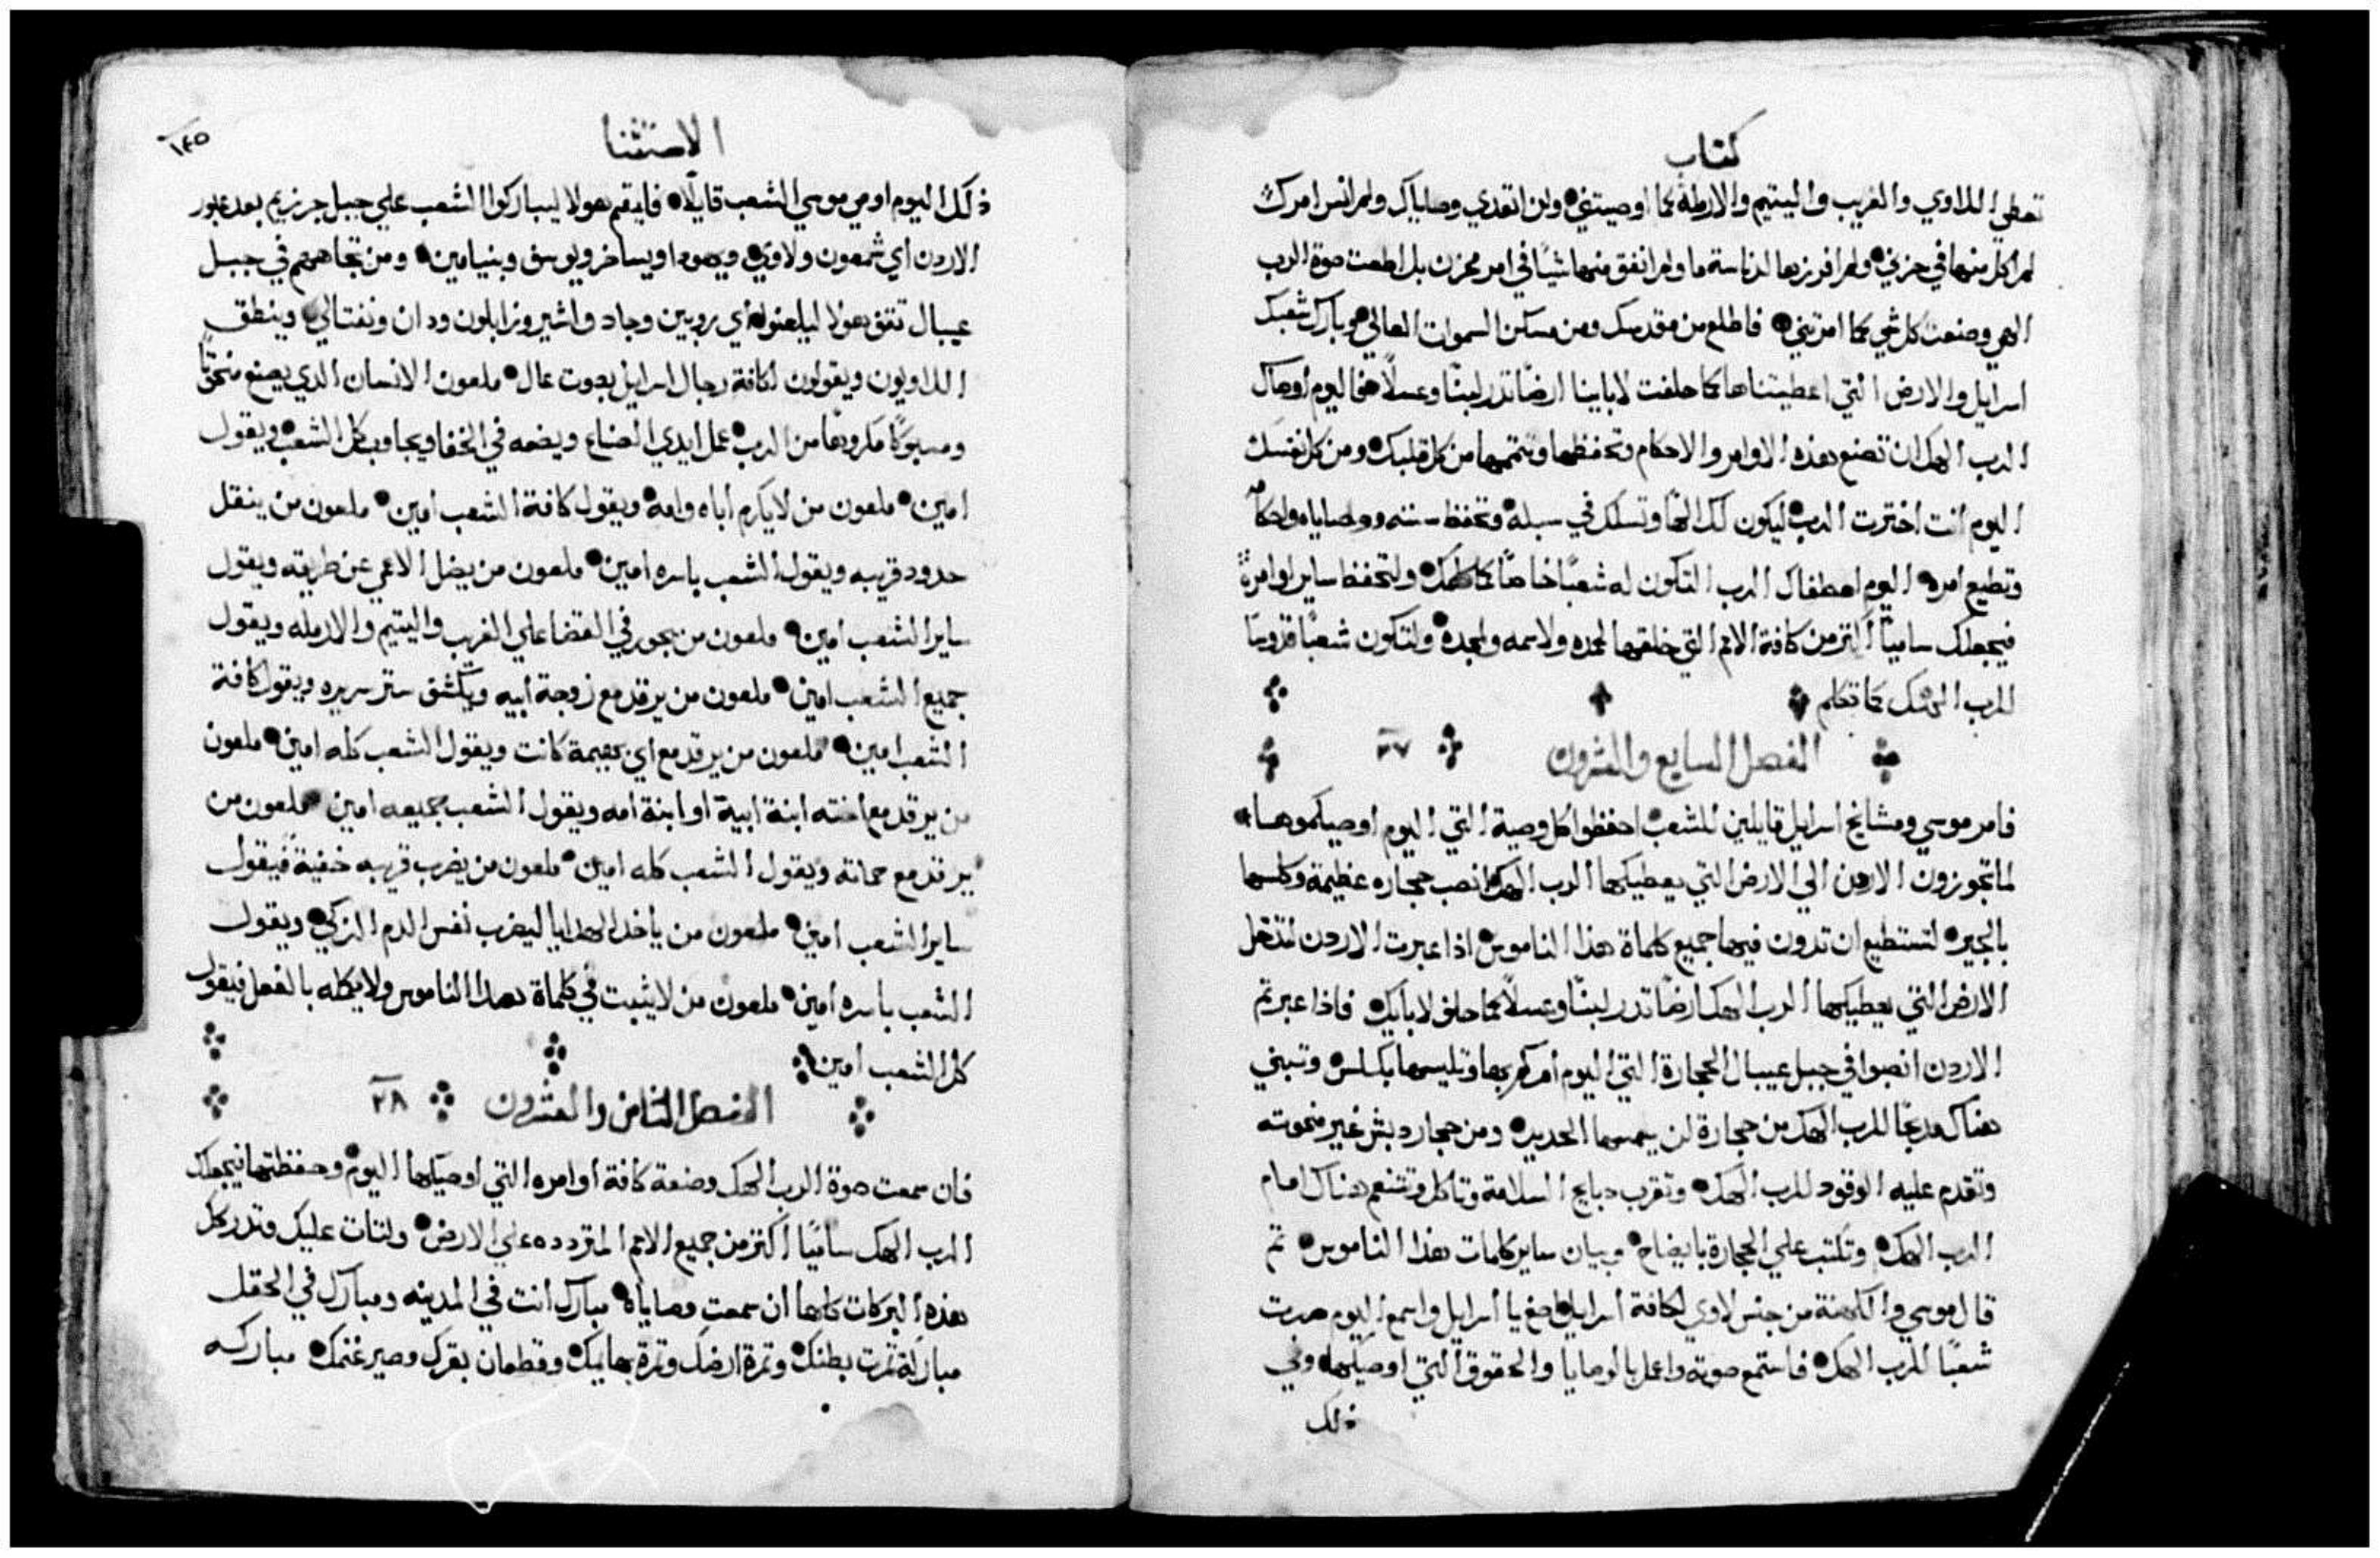 كتاب
تعطي اللاوي والغريب واليتيم والارملة كما اوصيتني ولن اتعدي وصاياك ولم انس امرك
لم اكل منها في حزني ولم افرزها لدناسة ما ولم انفق منها شيًا في امر محزن بل اطعت صوة الرب
الهي وصنعت كل شي كما امرتني فاطلع من مقدسك ومن مسكن السموات العالي وبارك شعبك
اسرايل والارض التي اعطيتناها كما حلفت لاباينا ارضًا تدر لبنًا وعسلًا هفا اليوم اوصاك
الرب الهك ان تصنع هذه الاوامر والاحكام وتحفظها وتتممها من كل قلبك ومن كل نفسك
اليوم انت اخترت الرب ليكون لك الهًا وتسلك في سبله وتحفظ سننه ووصاياه واحكامه
وتطيع امره اليوم اصطفاك الرب لتكون له شعبًا خاصًا كما كلمك ولتحفظ ساير اوامرة
فيجعلك ساميًا اكثر من كافة الامم التي خلقها لحمده ولاسمه ولمجدة ولتكون شعبًا قدوسًا
للرب الهك كما تكلم
الفصل السابع والعشرون ٢٧
فامر موسي ومشايخ اسرايل قايلين للشعب احفظوا كل وصية التي اليوم اوصيكموها
لما تجوزون الاردن الي الارض التي يعطيكها الرب الهك انصب حجاره عظيمة وكلسها
بالجير لتستطيع ان تدون فيها جميع كلماة هذا الناموس اذا عبرت الاردن لتدخل
الارض التي يعطيكها الرب الهك ارضًا تدر لبنًا وعسلًا كما حلف لابايك فاذا عبرتم
الاردن انصبوا في جبل عيبال الحجارة التي اليوم امركم بها وتليسها بكلس وتبني
هناك مدبحًا للرب الهك من حجارة لن يمسها الحديد ومن حجار دبش غير منحوته
وتقدم عليه الوقود للرب الهك وتقرب دبايح السلامة وتاكل وتتنعم هناك امام
الرب الهك وتكتب علي الحجارة بايضاح وبيان ساير كلمات هذا الناموس ثم
قال موسي والكهنة من جنس لاوي لكافة اسرايل اصغ يا اسرايل واسمع اليوم صرت
شعبًا للرب الهك فاستمع صوته واعمل بالوصايا والحقوق التي اوصيكها وفي
ذلك
الاستثنا
١٤٥
ذلك اليوم اوصي موسي الشعب قايلًا فليقم هولا ليباركوا الشعب علي جبل جرزيم بعد عبور
الاردن اي شمعون ولاوي ويهودا ويساخر ويوسف وبنيامين ومن تجاههم في جبل
عيبال تقف هولا ليلعنوا اي روبين وجاد واشير وزابلون ودان ونفتالي وينطق
اللاويون ويقولون لكافة رجال اسرايل بصوت عال ملعون الانسان الدي يصنع منحوتًا
ومسبوكًا مكروهًا من الرب عمل ايدي الصناع ويضعه في الخفا ويجاوب كل الشعب ويقول
امين ملعون من لا يكرم اباه وامه ويقول كافة الشعب امين ملعون من ينقل
حدود قريبه ويقول الشعب باسره امين ملعون من يضل الاعمي عن طريقه ويقول
ساير الشعب امين ملعون من يجور في القضا علي الغريب واليتيم والارمله ويقول
جميع الشعب امين ملعون من يرقد مع زوجة ابيه ويكشف ستر سريره ويقول كافة
الشعب امين ملعون من يرقد مع اي بهيمة كانت ويقول الشعب كله امين ملعون
من يرقد مع اخته ابنة ابية او ابنة امه ويقول الشعب جميعه امين ملعون من
يرقد مع حماته ويقول الشعب كله امين ملعون من يضرب قريبه خفيةً فيقول
ساير الشعب امين ملعون من ياخد الهدايا ليضرب نفس الدم الزكي ويقول
الشعب باسره امين ملعون من لا يثبت في كلماة هدا الناموس ولا يكمله بالفعل فيقول
كل الشعب امين
الفصل الثامن والعشرون ٢٨
فان سمعت صوة الرب الهك وصنعة كافة اوامره التي اوصيكها اليوم وحفظتها فيجعلك
الرب الهك ساميًا اكثر من جميع الامم المتردده علي الارض ولتات عليك وتدرك
هذه البركات كلها ان سمعت وصاياة مبارك انت في المدينه ومبارك في الحقل
مباركة ثمرت بطنك وثمرة ارضك وثمرة بهايمك وقطعان بقرك وصير غنمك مباركه